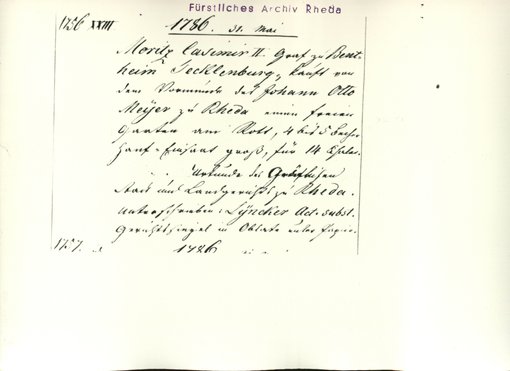 Fürstliches Archiv Rheda
1756 XXIII 1786. 31. Mai
Moritz Casimir II. Graf zu Bent-
heim Tecklenburg, kauft von
dem Vormunde des Johann Otto
Meijer zu Rheda einen freien
Garten am Rott, 4 bis 5 Becher
Hanf-Einsaat groß, für 14 Thaler.
Urkunde des Gräflichen
Stadt und Landgerichts zu Rheda.
Unterschrieben: Lÿncker Act. subst.
Gerichtssiegel in Oblate unter Papier.
1757. 1786